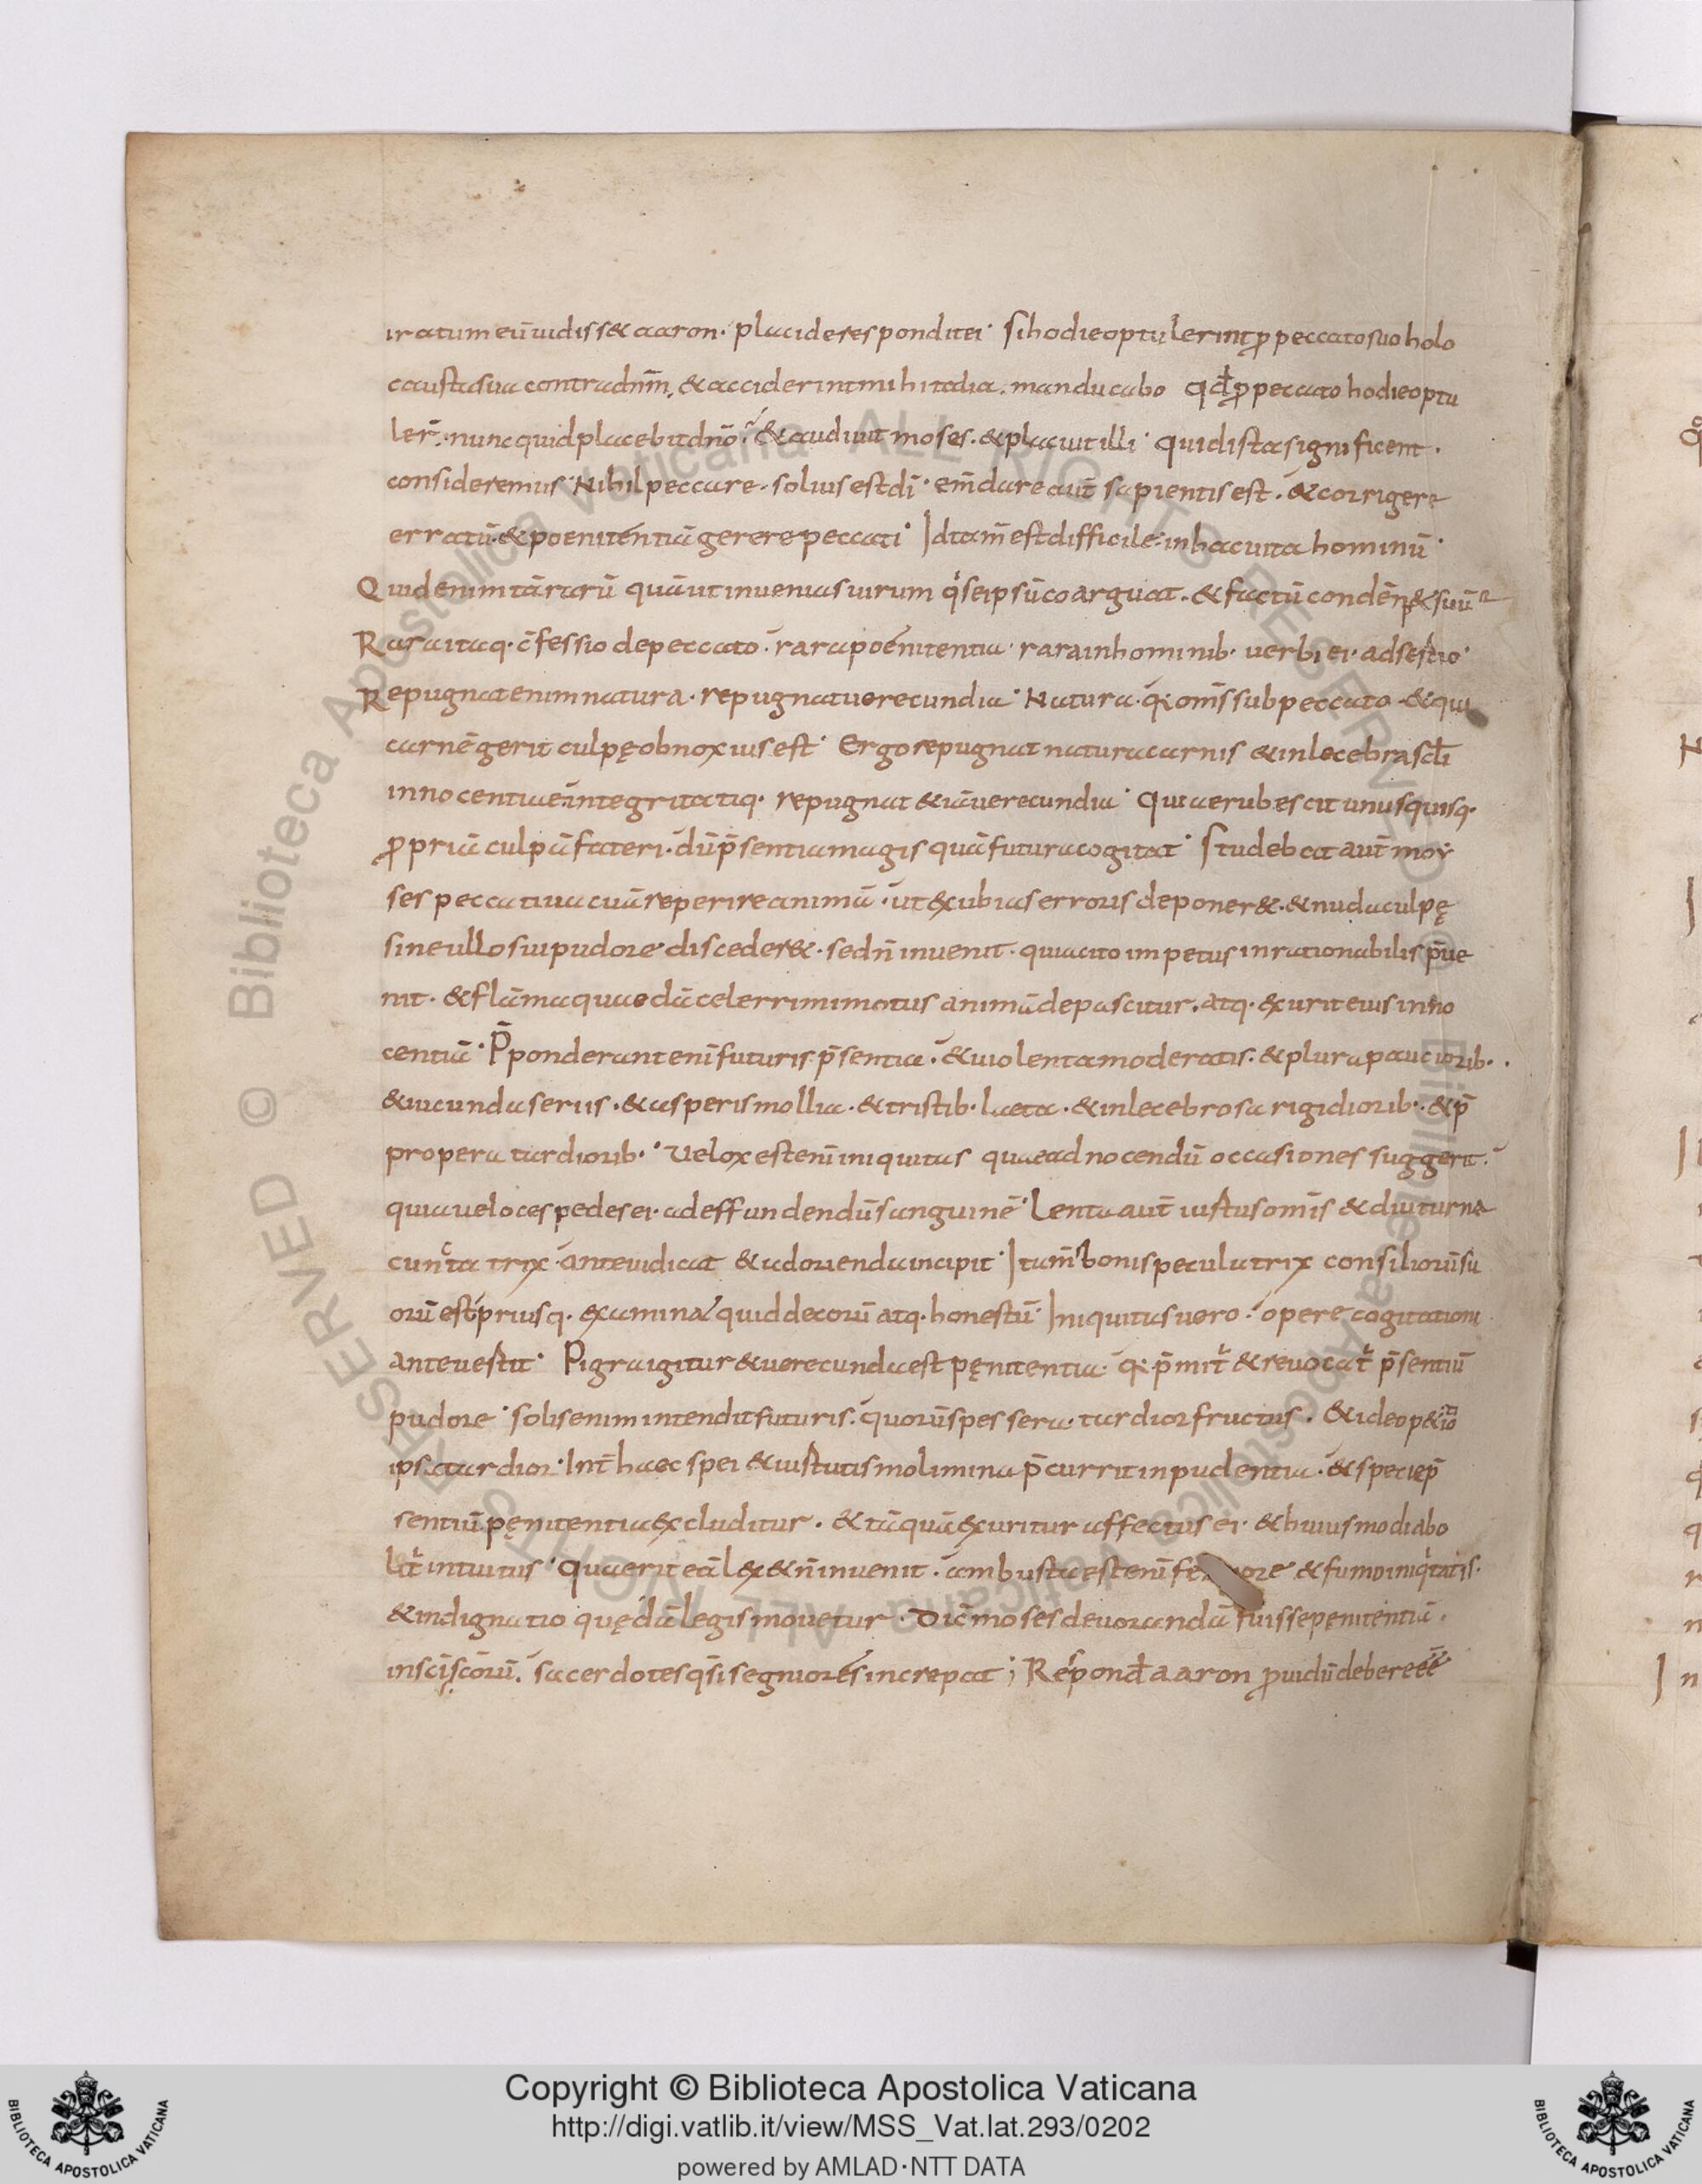 iratum eū uidiss& aaron · placide respondit ei · Si hodie optulerint ꝓ peccato suo holo
causta sua contra dn̄m, & acciderint mihi talia · manducabo qđ ꝓ peccato hodie optu
ler̄ · nunc quid placebit dn̄o · & audiuit moses · & placuit illi · quid ista significent ·
consideremus · Nihil peccare · solius est dī · em̄dare aut̄ sapientis est · & corrigere
erratū · & poenitentiā gerere peccati · Id tam̄ est difficile · in hac uita hominū ·
Quid enim tā rarū quā ut inuenias uirum qͥ seipsū coarguat · & factū condēn& suū
Rara itaq· c̄fessio de peccato · rara poenitentia · rara in hominib· uerbi ei· adsertio ·
Repugnat enim natura · repugnat uerecundia · Natura · q· om̄s sub peccato · & qui
carnē gerit culpę obnoxius est · Ergo repugnat natura carnis & inlecebra scłi
innocentiae integritatiq· repugnat & iā uerecundia · Quia erubescit unusquisq·
ꝓpriā culpā fateri · dū p̄sentia magis quā futura cogitat · Studebat aut̄ moy
ses peccati uacuā reperire animā · ut exubias erroris deponer& · & nuda culpę
sine ullo sui pudore disceder& · sed n̄ inuenit · quia cito impetus inrationabilis p̄ue
nit · & flāma quaedā celerrimi motus animā depascitur · atq· exurit eius inno
centiā · P̄ponderant eni futuris p̄sentia · & uiolenta moderatis · & plura pauciorib· ·
& iucunda seriis · & asperis mollia · & tristib· laeta · & inlecebrosa rigidiorib· · & p̄
propera tardiorib· · Velox est enī iniquitas quae ad nocendū occasiones suggerit ·
quia ueloces pedes ei· ad effundendū sanguinē · Lenta aut̄ iustus om̄is & diuturna
cunctatrix · ante uidicat & adorienda incipit · Ita m̄ bonis speculatrix consiliorū su
orū est priusq· examinat quid decorū atq· honestū · Iniquitas uero · opere cogitationi
anteuertit · Pigra igitur & uerecunda est pęnitentia · q· p̄mit̄ & reuocat̄ p̄sentiū
pudore · solis enim intendit futuris · quorū spes sera · tardior fructus · & ideo p&itio
ipsa tardior · Int̄ haec spei & iustutis molimina p̄currit inpudentia · & specie p̄
sentiū pęnitentia excluditur · & tā quā exuritur affectus ei· & huiusmodi abo
let̄ intuitus · Quaerit eā lex & n̄ inuenit · ambusta est enī feruore & fumo iniqͥtatis ·
& indignatio quędā legis mouetur · Dic̄ moses deuorandā fuisse penitentiā ·
in sc̄is sc̄orū · sacerdotes q̄si segniores increpat ; Respond̄ aaron ꝓuidū debere ēē
Copyright © Biblioteca Apostolica Vaticana
http://digi.vatlib.it/view/MSS_Vat.lat.293/0202
powered by AMLAD·NTT DATA